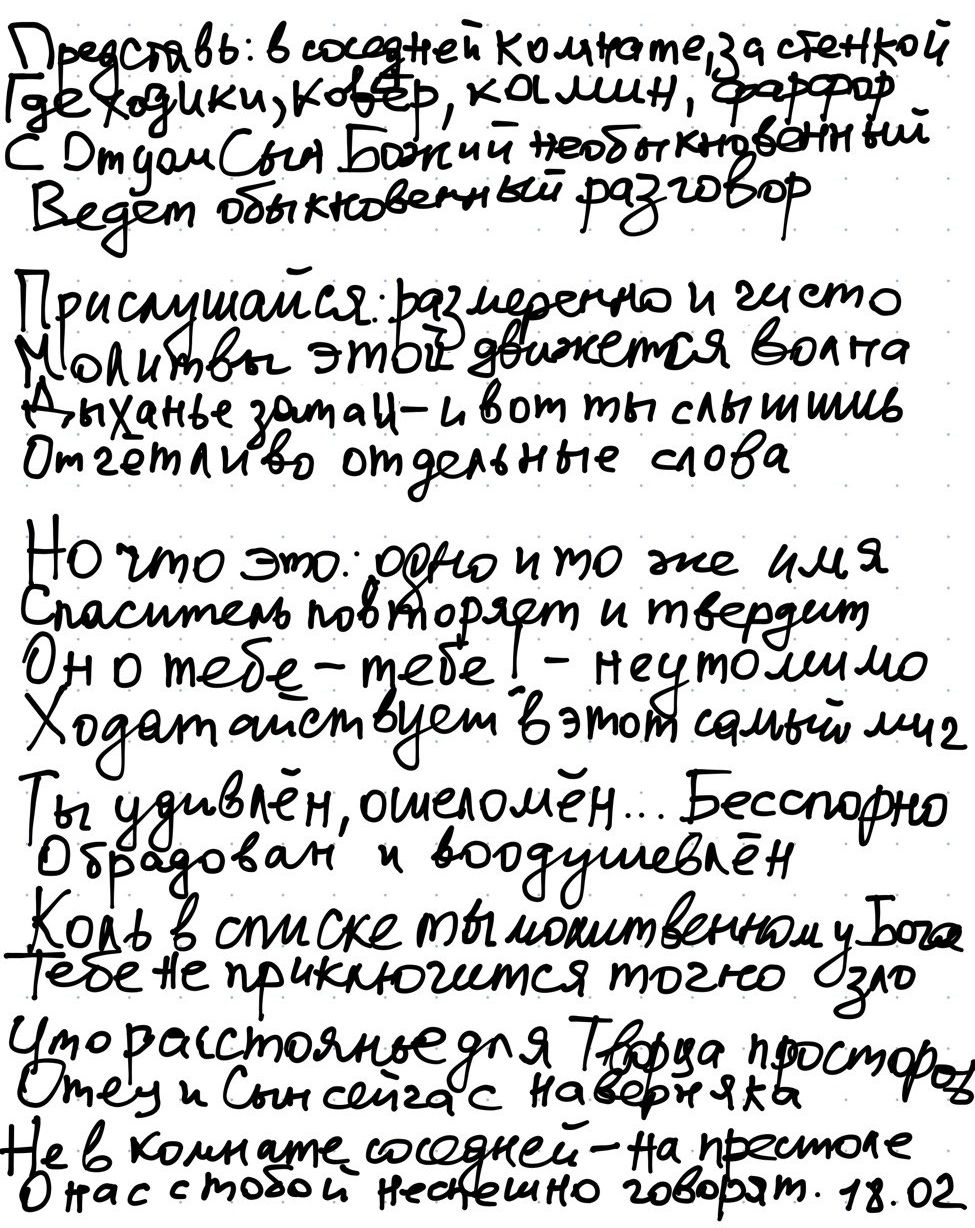 Представь: в соседней комнате, за стенкой
Где ходики, ковёр, камин, фарфор
С Отцом Сын Божий необыкновенный
Ведёт обыкновенный разговор
Прислушайся: размеренно и чисто
Молитвы этой движется волна
Дыханье затаи – и вот ты слышишь
Отчётливо отдельные слова
Но что это: одно и то же имя
Спаситель повторяет и твердит
Он о тебе – тебе! – неутомимо
Ходатайствует в этот самый миг
Ты удивлён, ошеломлён... Бесспорно
Обрадован и воодушевлён
Коль в списке ты молитвенном у Бога
Тебе не приключится точно зло
Что расстоянье для Творца простороз
Отец и Сын сейчас наверняка
Не в комнате соседней – на престоле
О нас с тобой неспешно говорят. 18.02